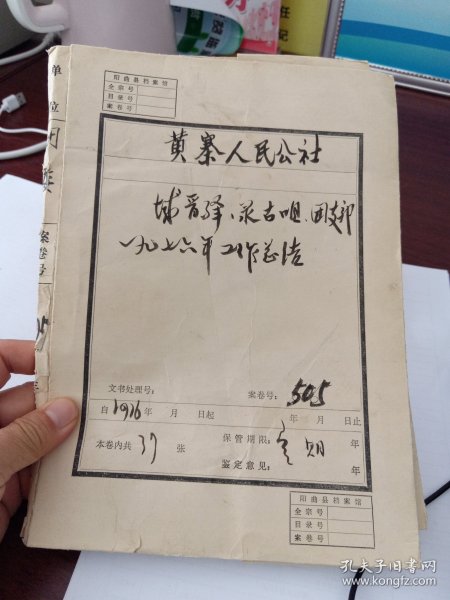 阳曲县档案馆
全宗号
目录号
案卷号
黄寨人民公社
城晋驿、录古咀、团支部
一九七六年工作总结
文书处理号：
案卷号：505
自1976年 月 日起 年 月 日止
本卷内共37张
保管期限：定期 年
鉴定意见： 年
阳曲县档案馆
全宗号
目录号
案卷号
单位
案卷号
孔夫子旧书网
www.kongfz.com